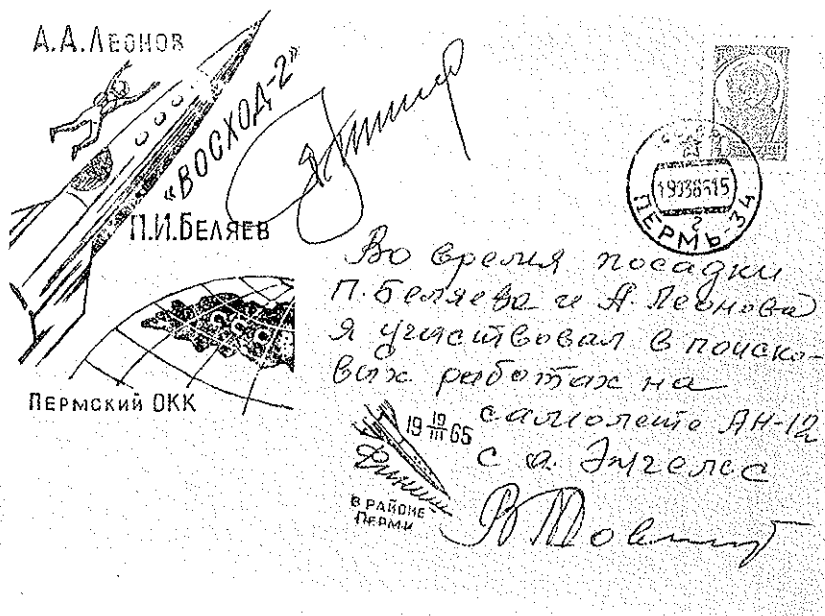 А.А.ЛЕОНОВ
«ВОСХОД-2»
П.И.БЕЛЯЕВ
СССР
ПЕРМСКИЙ ОКК
ПЕРМЬ-34
Во время посадки
П. Беляева и А. Леонова
я участвовал в поиско-
вых работах на
самолете АН-12
с а. Энгелс
19 19/III 65
Финиш
В РАЙОНЕ
ПЕРМИ